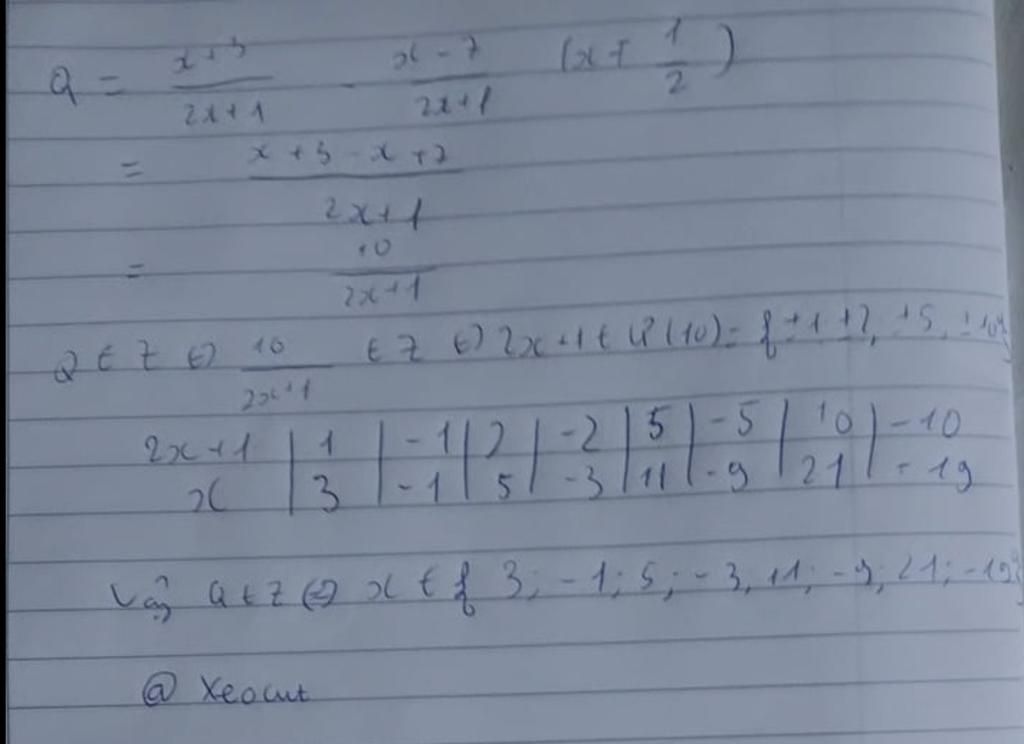 Q = x+3/2x+1 - x-7/2x+1 (x≠ 1/2)
= x+3-x+7/2x+1
= 10/2x+1
Q ∈ Z ⇔ 10/2x+1 ∈ Z ⇔ 2x+1 ∈ Ư(10) = {±1 ±2, ±5, ±10}
2x+1 | 1 | -1 | 2 | -2 | 5 | -5 | 10 | -10
x | 3 | -1 | 5 | -3 | 11 | -9 | 21 | -19
Vậy Q ∈ Z ⇔ x ∈ { 3; -1; 5; -3, 11; -9; 21; -19}
@ Xeocut